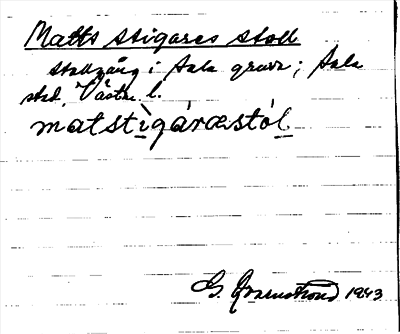 Matts Stigares stoll
stollgång i Sala gruva; Sala
stad, Västm. l.
matstìgáræstól
G. Kvarnström 1943